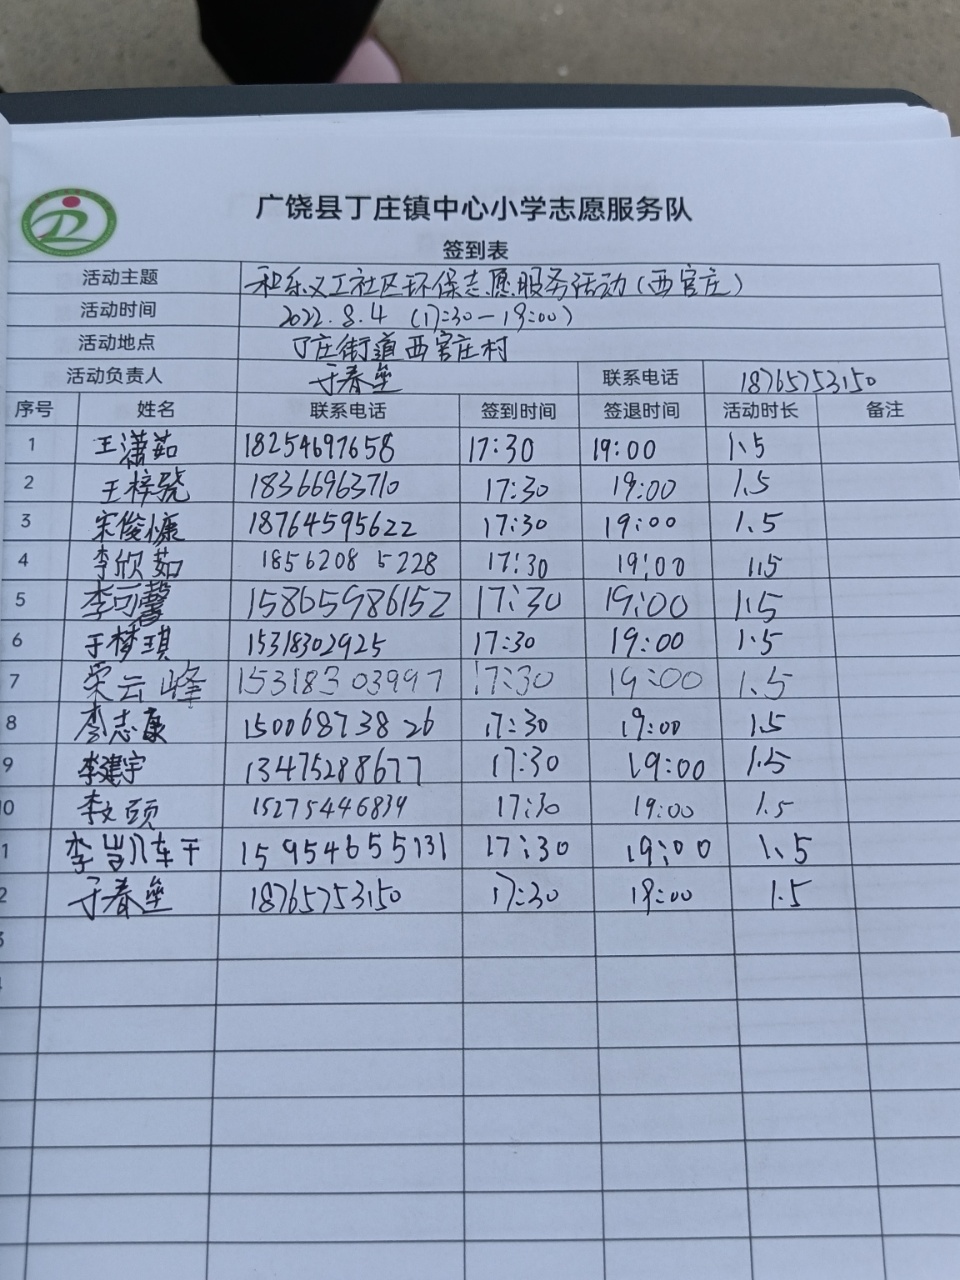 广饶县丁庄镇中心小学志愿服务队
签到表
活动主题 和乐义工社区环保志愿服务活动(西官庄)
活动时间 2022.8.4 (17:30-19:00)
活动地点 丁庄街道西官庄村
活动负责人 于春垒 联系电话 18765753150
序号 姓名 联系电话 签到时间 签退时间 活动时长 备注
1 王潇茹 18254697658 17:30 19:00 1.5
2 王梓骁 18366963710 17:30 19:00 1.5
3 宋俊慷 18764595622 17:30 19:00 1.5
4 李欣茹 18562085228 17:30 19:00 1.5
5 李可馨 15865986152 17:30 19:00 1.5
6 于梦琪 15318302925 17:30 19:00 1.5
7 荣云峰 15318303997 17:30 19:00 1.5
8 廖志康 15006873826 17:30 19:00 1.5
9 李建宇 13475288677 17:30 19:00 1.5
10 李文硕 15275446839 17:30 19:00 1.5
1 李凯 15954655131 17:30 19:00 1.5
2 于春垒 18765753150 17:30 19:00 1.5
3